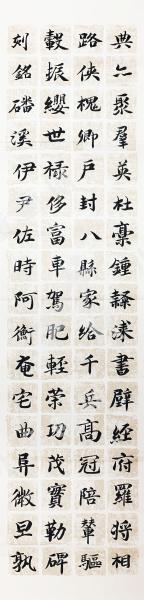 典亦聚羣英杜稾鍾隸漆書壁經府羅將相
路俠槐卿戶封八縣家給千兵高冠陪輦驅
轂振纓世祿侈富車駕肥輕策功茂實勒碑
刻銘磻溪伊尹佐時阿衡奄宅曲阜微旦孰